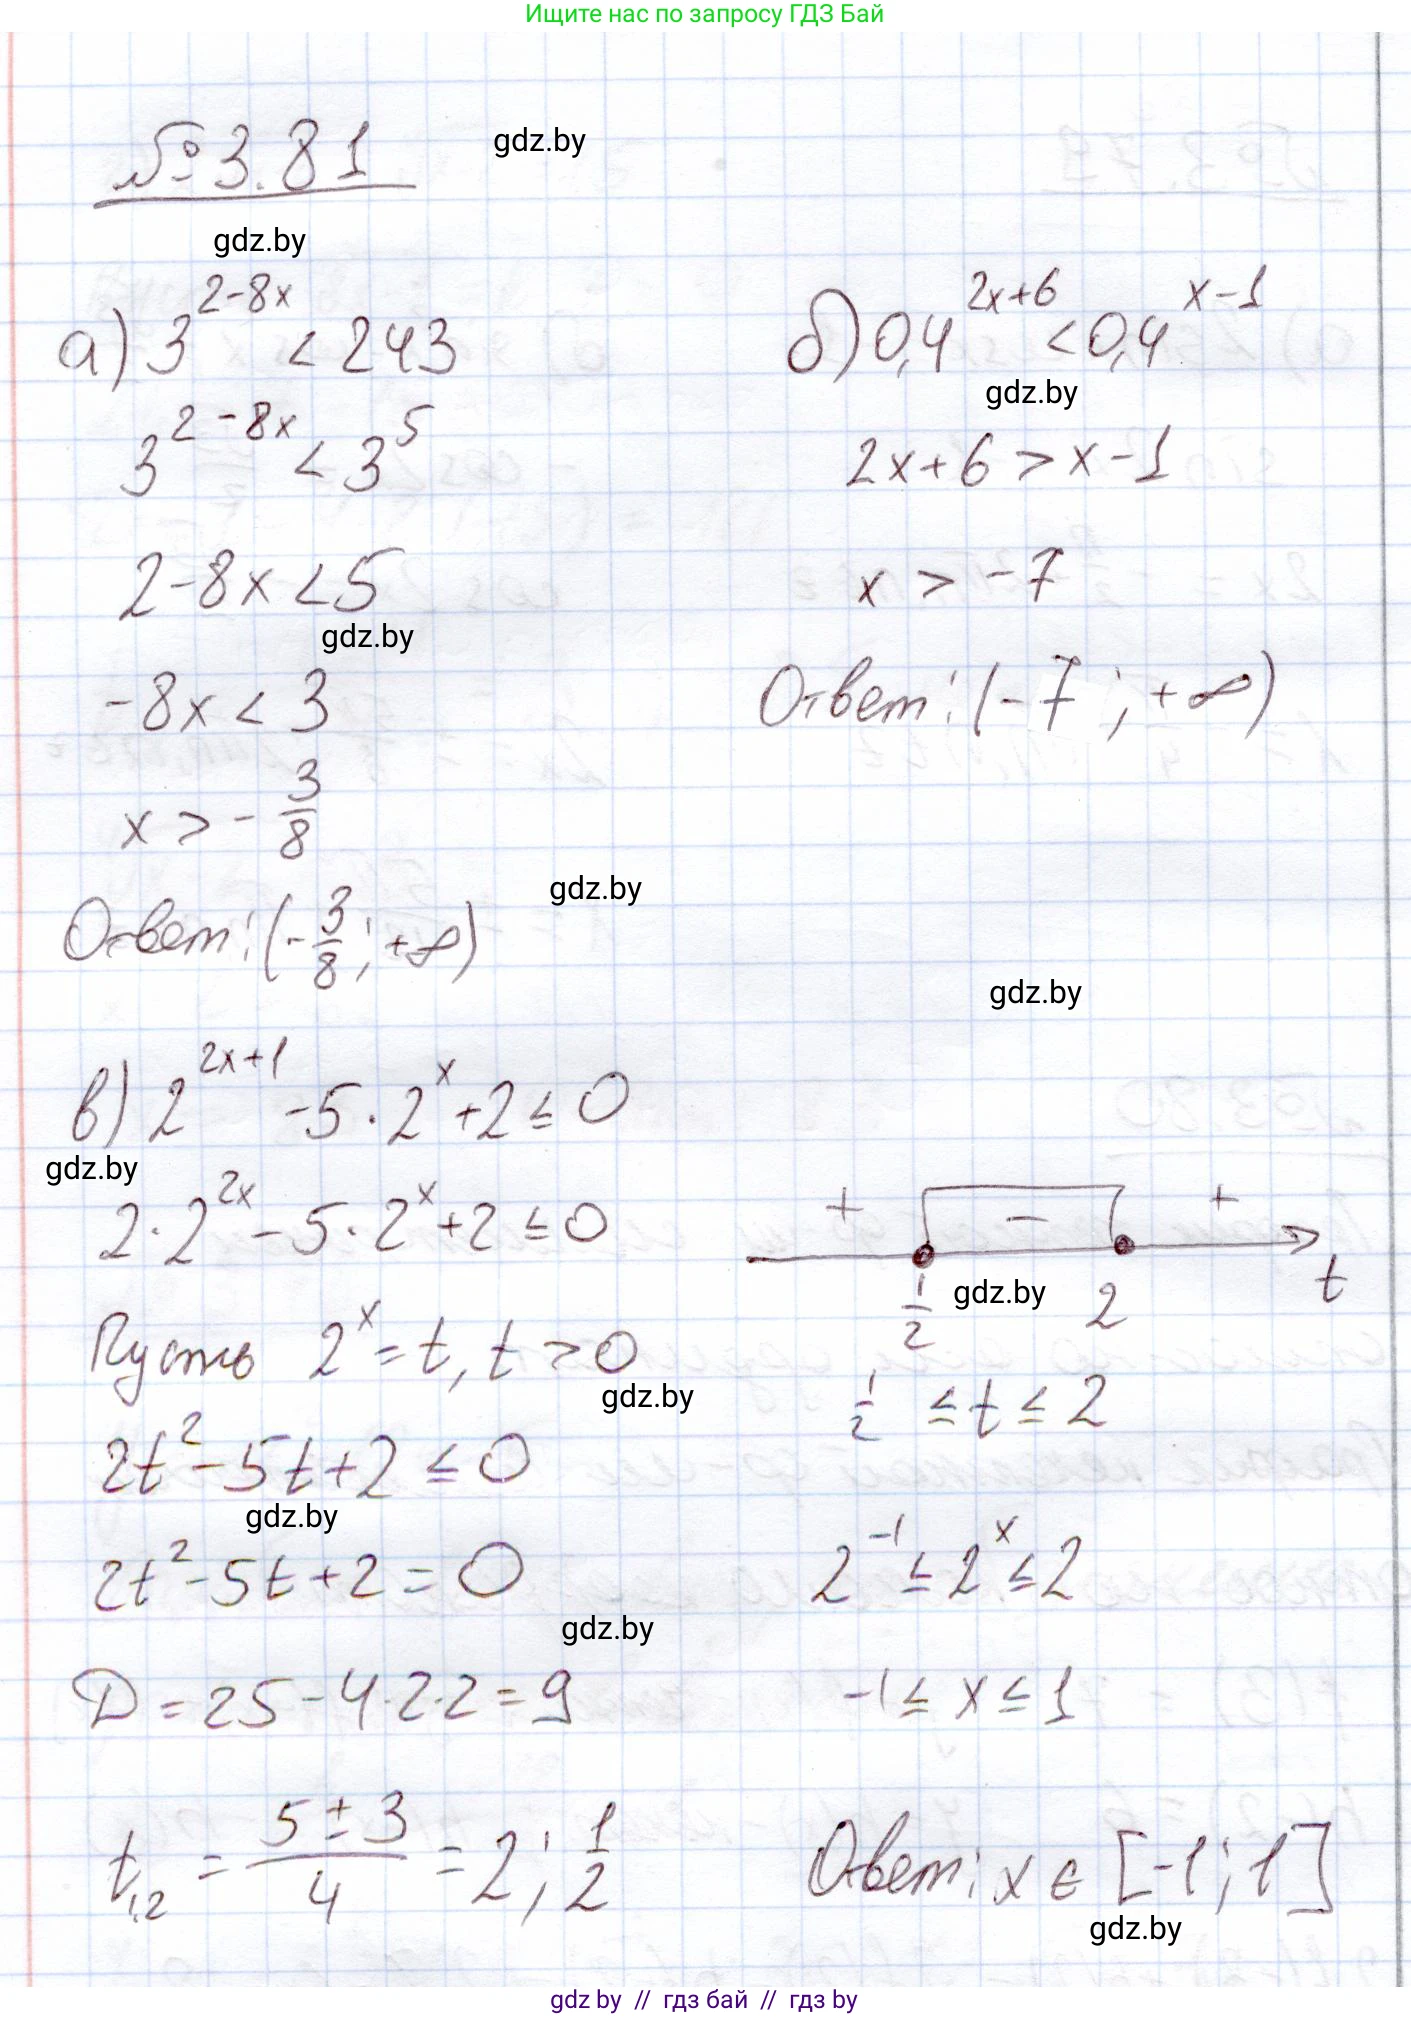 Ищите нас по запросу ГДЗ Бай
№ 3.81
gdz.by
gdz.by
а) 3^{2-8x} < 243
3^{2-8x} < 3^5
2-8x < 5
gdz.by
-8x < 3
x > -3/8
Ответ: (-3/8; +∞)
б) 0,4^{2x+6} < 0,4^{x-1}
gdz.by
2x+6 > x-1
x > -7
Ответ: (-7; +∞)
gdz.by
gdz.by
в) 2^{2x+1} - 5·2^x + 2 ≤ 0
gdz.by
2·2^{2x} - 5·2^x + 2 ≤ 0
Пусть 2^x = t, t > 0
gdz.by
2t^2 - 5t + 2 ≤ 0
gdz.by
2t^2 - 5t + 2 = 0
gdz.by
D = 25 - 4·2·2 = 9
t_{1,2} = (5 ± 3)/4 = 2; 1/2
+ - +
1/2 gdz.by 2 t
1/2 ≤ t ≤ 2
2^{-1} ≤ 2^x ≤ 2
-1 ≤ x ≤ 1
Ответ: x ∈ [-1; 1]
gdz.by
gdz by // гдз бай // гдз by